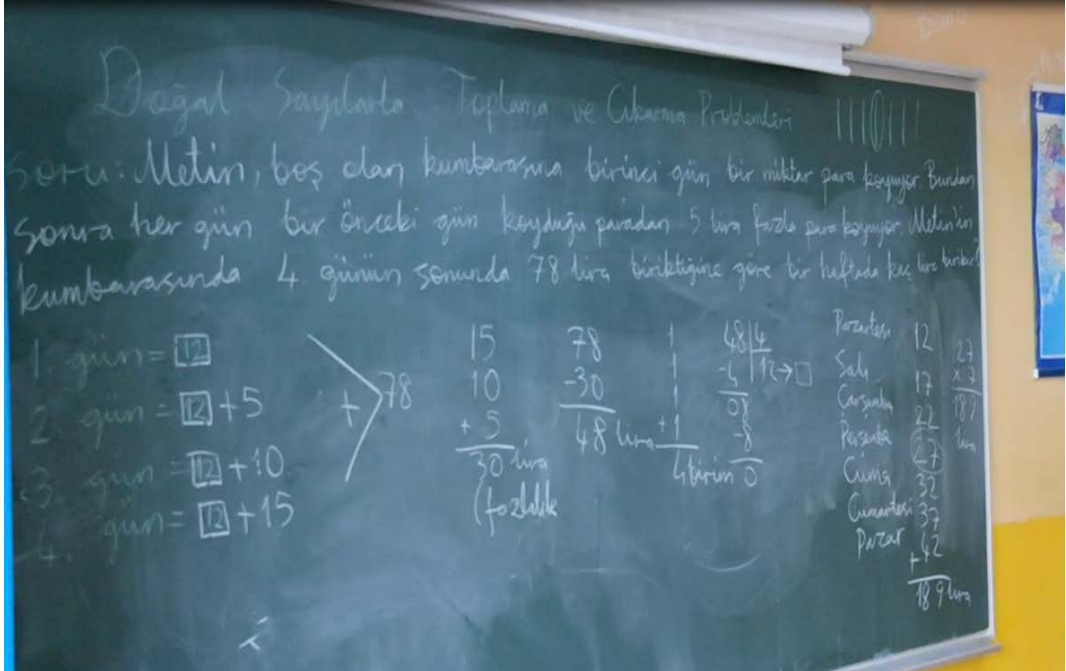 Doğal Sayılarla Toplama ve Çıkarma Problemleri
Soru: Metin, boş olan kumbarasına birinci gün bir miktar para koyuyor. Bundan
sonra her gün bir önceki gün koyduğu paradan 5 lira fazla para koyuyor. Metin'in
kumbarasında 4 günün sonunda 78 lira biriktiğine göre bir haftada kaç lira birikir?
1. gün = 12
2. gün = 12 + 5
3. gün = 12 + 10
4. gün = 12 + 15
+ 78
15
10
+ 5
30 lira
(fazlalık
78
-30
48 lira
1
1
1
+1
4 birim
48 4
-4 12→□
08
-8
0
Pazartesi 12
Salı 17
Çarşamba 22
Perşembe 27
Cuma 32
Cumartesi 37
Pazar +42
189 lira
27
x 7
189
lira